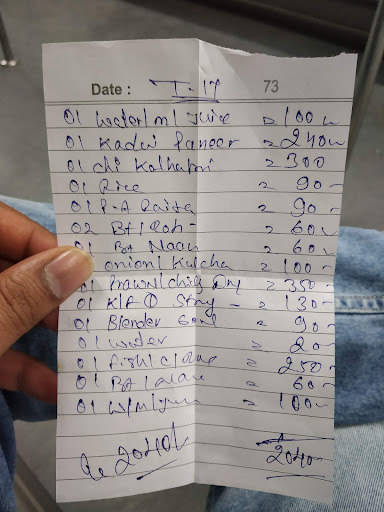 Date : T-17 73
01 Water/ml Juice = 100
01 Kadai Paneer = 240
01 chi Kolhapuri = 300
01 Rice = 90
01 P.A Raita = 90
02 Bt/Roti = 60
01 Bt Naan = 60
01 onion/Kulcha = 100
01 Prawn/chilly Dry = 350
01 K/F = 130
01 Blender = 90
01 water = 20
01 fish/c = 250
01 Bt/ = 60
01 w/m = 100
2040
2040